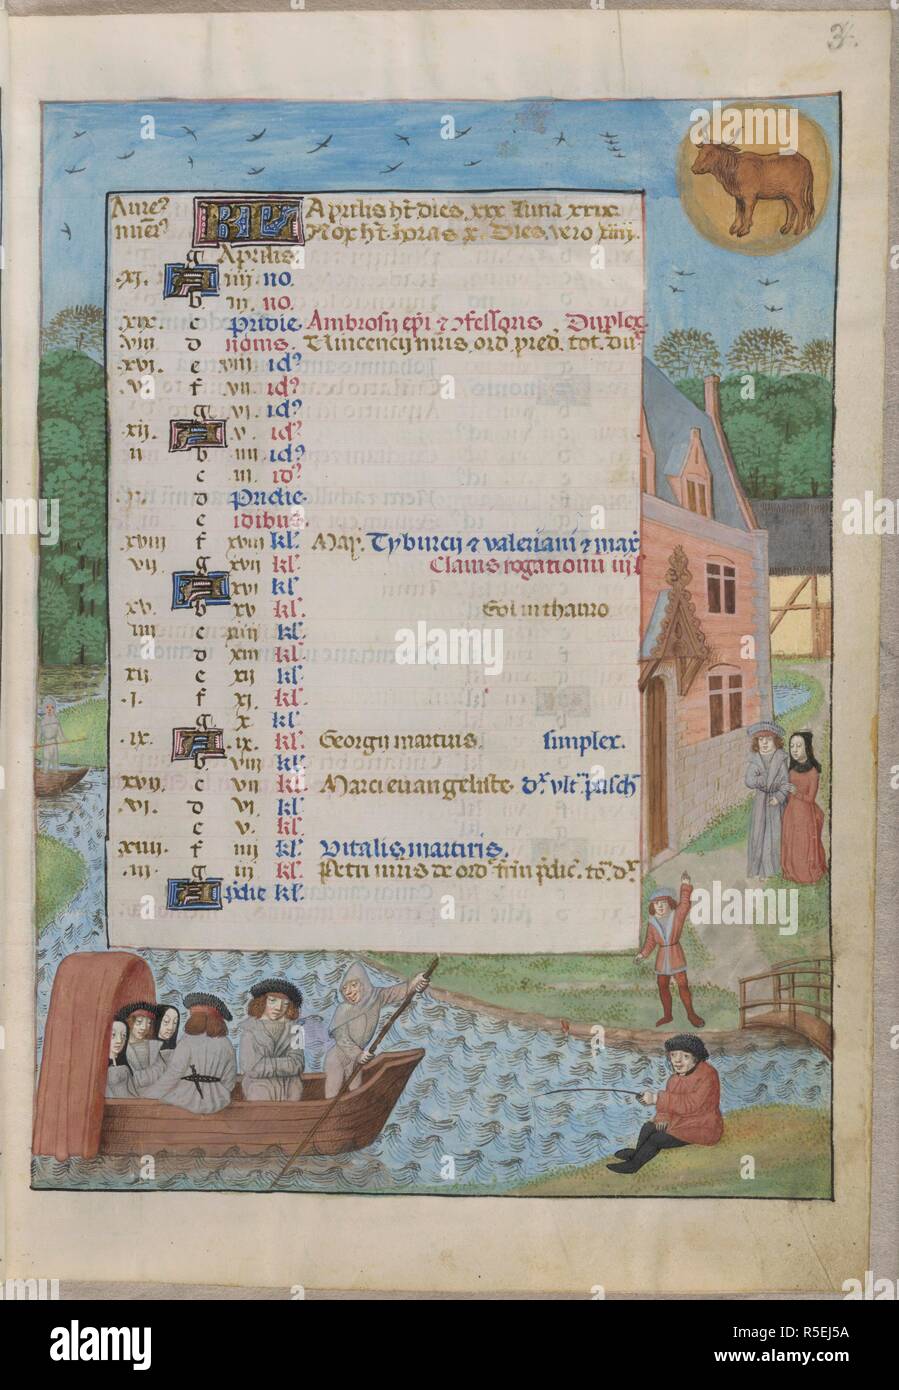 3
Aprilis ht dies. xxx Luna xxix.
Nox ht horas x. Dies vero xiiij.
g Aprilis.
.xi. A iiij no.
b iij no.
.xix. c Pridie Ambrosij epi & cfessoris Duplex
viij d nonis. Vincencij mris. ord. pred. tot. du
.xvi. e viij id9
.v. f vij id9
g vi. id9
.xij. A .v. id9
ij b iiij id9
c iij id9
.x. d Pridie
e idibus.
xviij f xviij kl. Tyburcij & valeriani & max
vij. g xvij kl. Clauis rogationū iij
A xvi kl
xv. b xv kl. Sol in thauro
iiij c xiiij kl.
d xiij kl.
xij e xij kl.
.i. f xi. kl.
g x kl.
.ix. A .ix. kl. Georgij martiris. simplex.
b viij kl.
xvij. c vij kl. Marci euangeliste
.vi. d vi kl.
e v. kl.
xiiij f iiij kl. Vitalis martiris.
.iij. g iij kl. Petri mris de ord
A p̄die kl.
alamy
Image ID: R5EJ5A
www.alamy.com